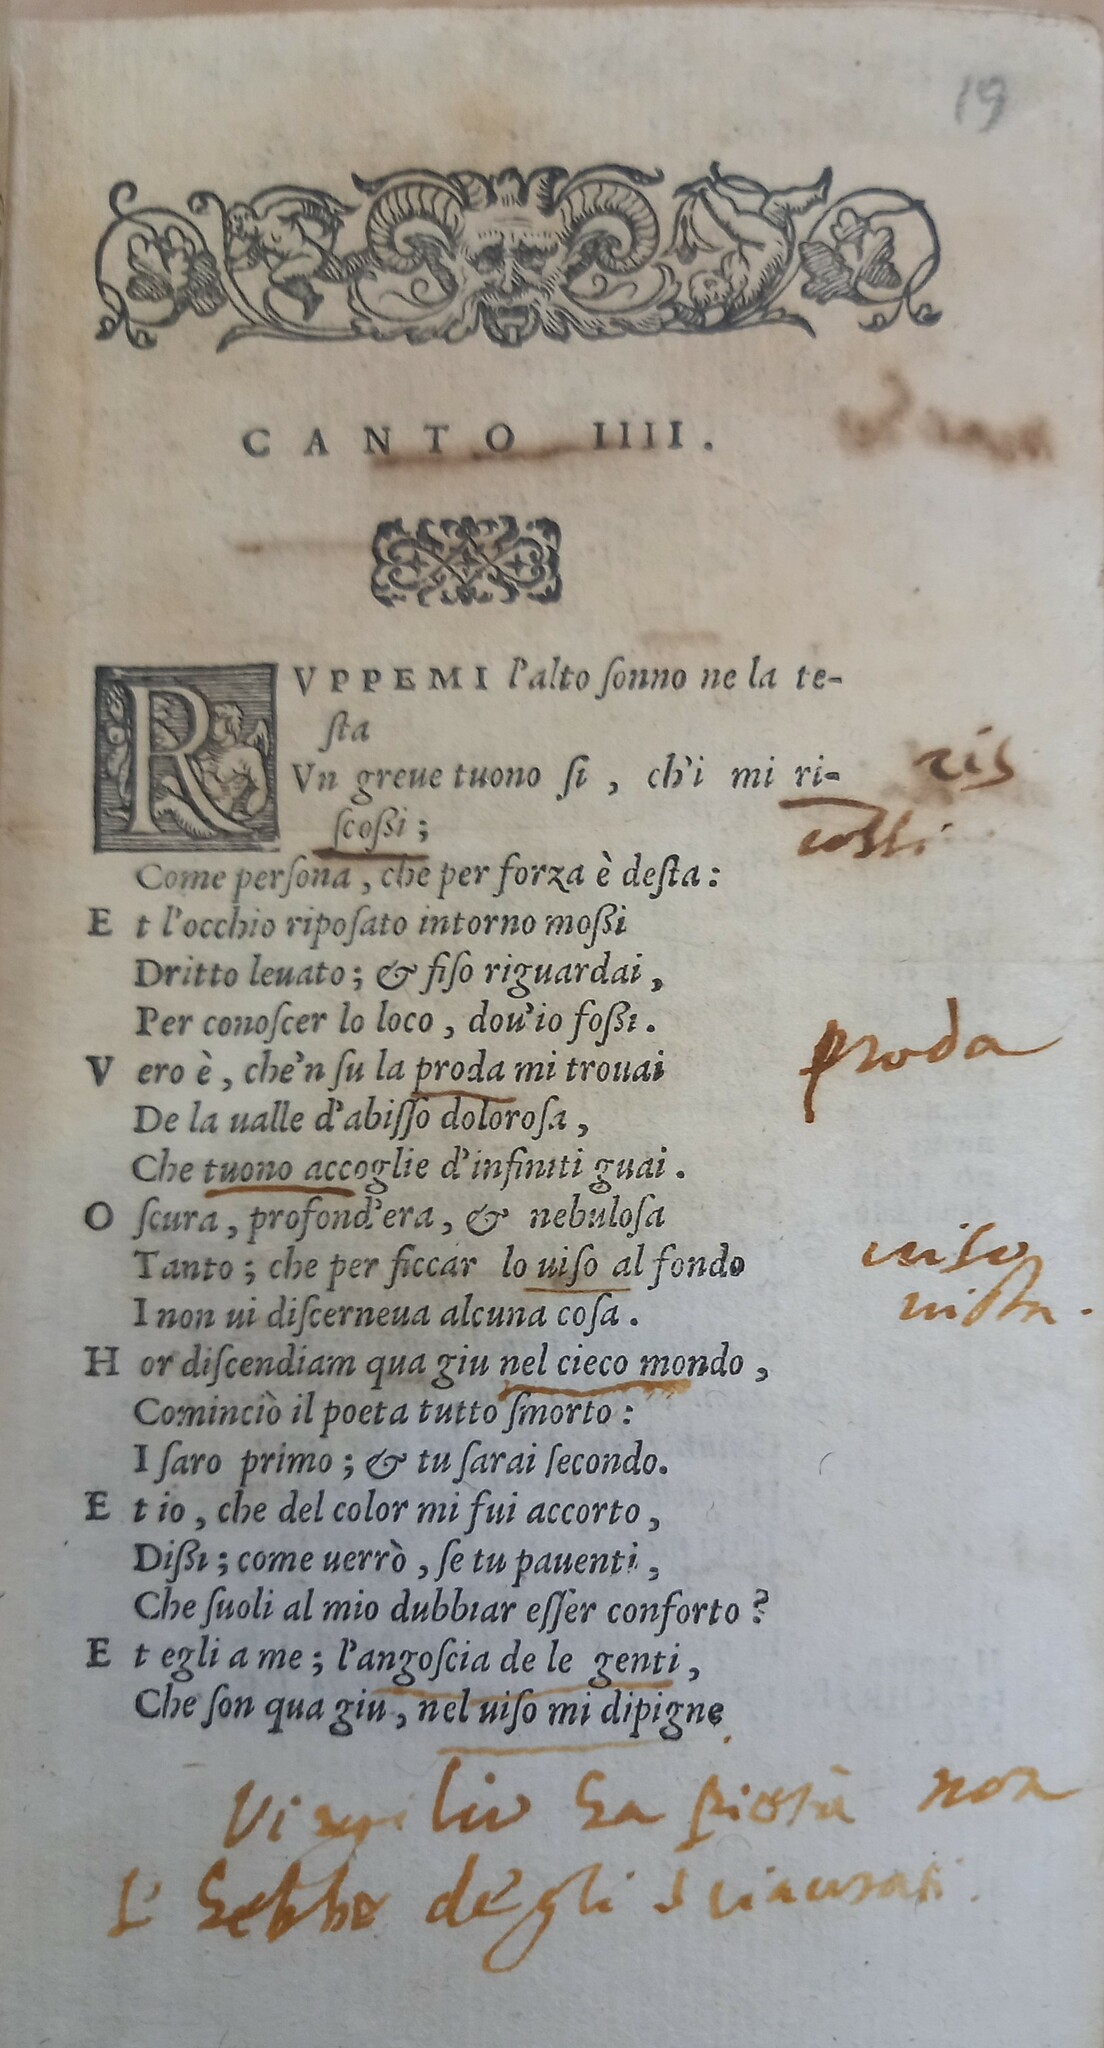 19
CANTO IIII.
RVPPEMI l'alto ſonno ne la te-
ſta
Vn greue tuono ſi, ch'i mi ri-
ris
ſcoßi;
cossi
Come perſona, che per forza è deſta:
Et l'occhio ripoſato intorno moßi
Dritto leuato; & fiſo riguardai,
Per conoſcer lo loco, dou'io foßi.
Vero è, che'n ſu la proda mi trouai
proda
De la ualle d'abiſſo doloroſa,
Che tuono accoglie d'infiniti guai.
Oſcura, profond'era, & nebuloſa
Tanto; che per ficcar lo uiſo al fondo
uiso
I non ui diſcerneua alcuna coſa.
uista.
Hor diſcendiam qua giu nel cieco mondo,
Cominciò il poeta tutto ſmorto:
I ſaro primo; & tu ſarai ſecondo.
Et io, che del color mi fui accorto,
Dißi; come uerrò, ſe tu pauenti,
Che ſuoli al mio dubbiar eſſer conforto?
Et egli a me; l'angoſcia de le genti,
Che ſon qua giu, nel uiſo mi dipigne
Virgilio ha pietà non
l' hebbe degli sciaurati.